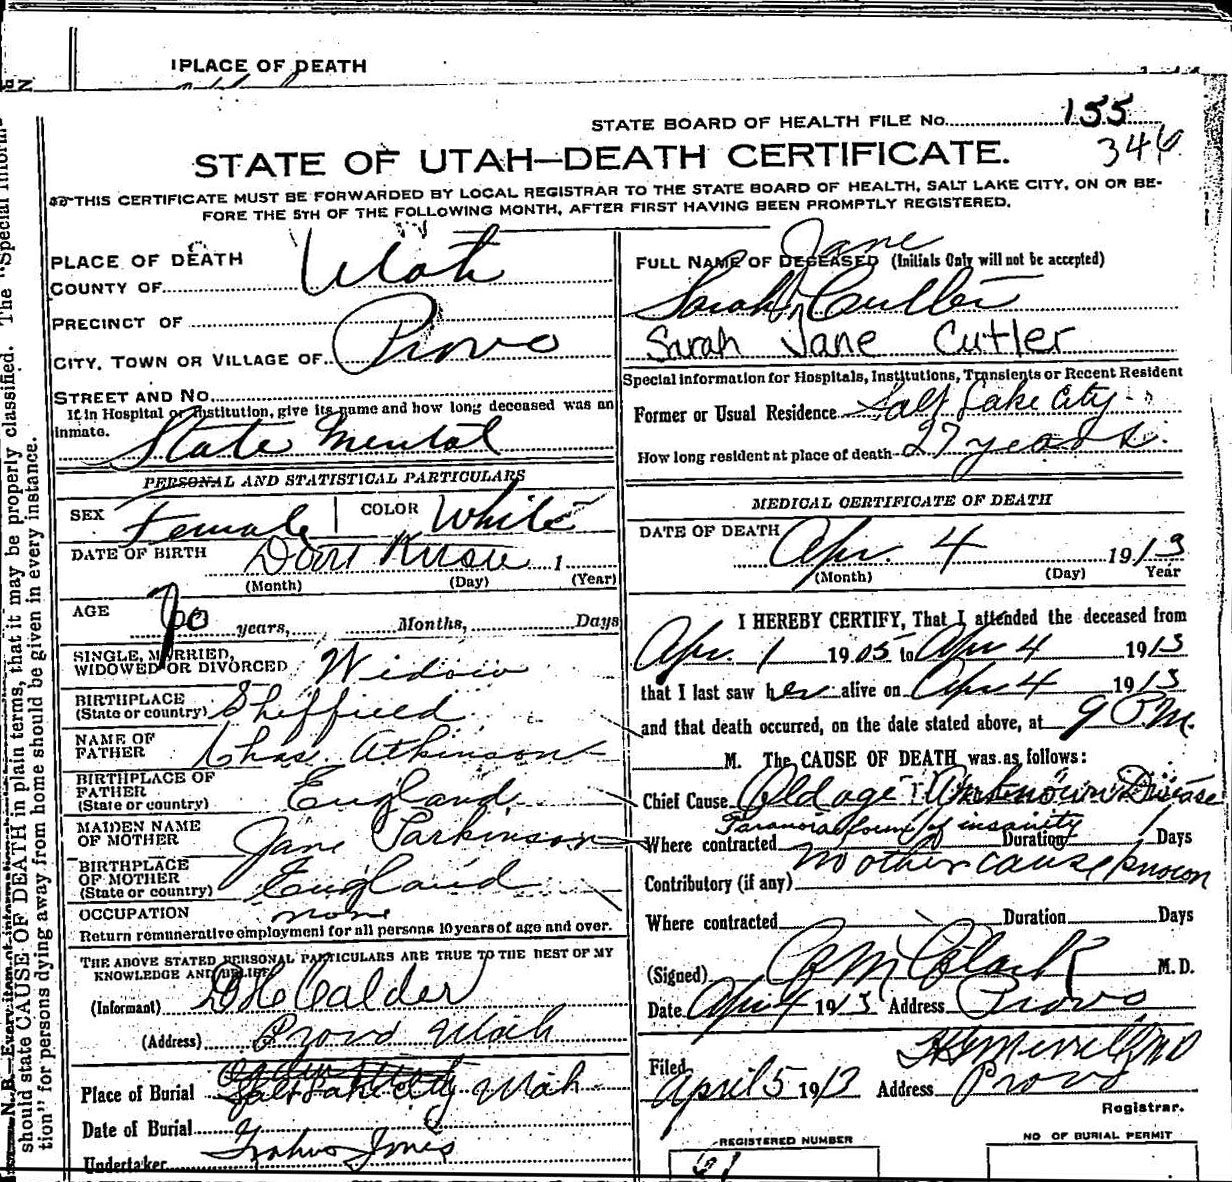 PLACE OF DEATH
STATE BOARD OF HEALTH FILE No. 155
346
STATE OF UTAH—DEATH CERTIFICATE.
THIS CERTIFICATE MUST BE FORWARDED BY LOCAL REGISTRAR TO THE STATE BOARD OF HEALTH, SALT LAKE CITY, ON OR BE-
FORE THE 5TH OF THE FOLLOWING MONTH, AFTER FIRST HAVING BEEN PROMPTLY REGISTERED.
PLACE OF DEATH
COUNTY OF Utah
PRECINCT OF
CITY, TOWN OR VILLAGE OF Provo
STREET AND No.
If in Hospital or Institution, give its name and how long deceased was an
inmate. State Mental
PERSONAL AND STATISTICAL PARTICULARS
SEX Female COLOR White
DATE OF BIRTH Dont Know 1
(Month) (Day) (Year)
AGE 70 years, Months, Days
SINGLE, MARRIED,
WIDOWED OR DIVORCED Widow
BIRTHPLACE
(State or country) Sheffield
NAME OF
FATHER Chas. Atkinson
BIRTHPLACE OF
FATHER
(State or country) England
MAIDEN NAME
OF MOTHER Jane Parkinson
BIRTHPLACE
OF MOTHER
(State or country) England
OCCUPATION none
Return remunerative employment for all persons 10 years of age and over.
THE ABOVE STATED PERSONAL PARTICULARS ARE TRUE TO THE BEST OF MY
KNOWLEDGE AND BELIEF
(Informant) D H Calder
(Address) Provo Utah
Place of Burial Salt Lake City Utah
Date of Burial
Undertaker Jones
Jane
FULL NAME OF DECEASED (Initials Only will not be accepted)
Sarah Cutler
Sarah Jane Cutler
Special information for Hospitals, Institutions, Transients or Recent Resident
Former or Usual Residence Salt Lake City
How long resident at place of death 27 years.
MEDICAL CERTIFICATE OF DEATH
DATE OF DEATH
Apr. 4 1913
(Month) (Day) Year
I HEREBY CERTIFY, That I attended the deceased from
Apr. 1 1905 to Apr 4 1913
that I last saw her alive on Apr 4 1913
and that death occurred, on the date stated above, at 9 P.M.
M. The CAUSE OF DEATH was as follows:
Chief Cause Old age Unknown Disease
Paranoia form of insanity
Where contracted Duration Days
Contributory (if any) No other cause known
Where contracted Duration Days
(Signed) Clark M.D.
Date Apr 4 1913 Address Provo
Filed
April 5 1913 Address Provo
Registrar.
REGISTERED NUMBER
NO OF BURIAL PERMIT
should state CAUSE OF DEATH in plain terms, that it may be properly classified. The "Special Inform-
tion" for persons dying away from home should be given in every instance.